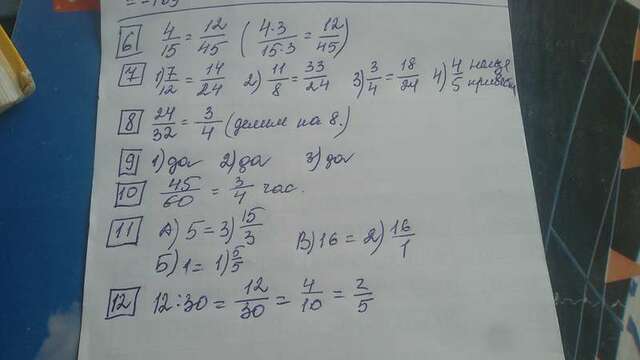 6 4/15 = 12/45 (4·3/15·3 = 12/45)
7 1) 7/12 = 14/24 2) 11/8 = 33/24 3) 3/4 = 18/24 4) 4/5 нельзя
8 24/32 = 3/4 (делим на 8.)
9 1) да 2) да 3) да
10 45/60 = 3/4 час.
11 А) 5 = 3) 15/3 В) 16 = 2) 16/1
Б) 1 = 1) 5/5
12 12:30 = 12/30 = 4/10 = 2/5